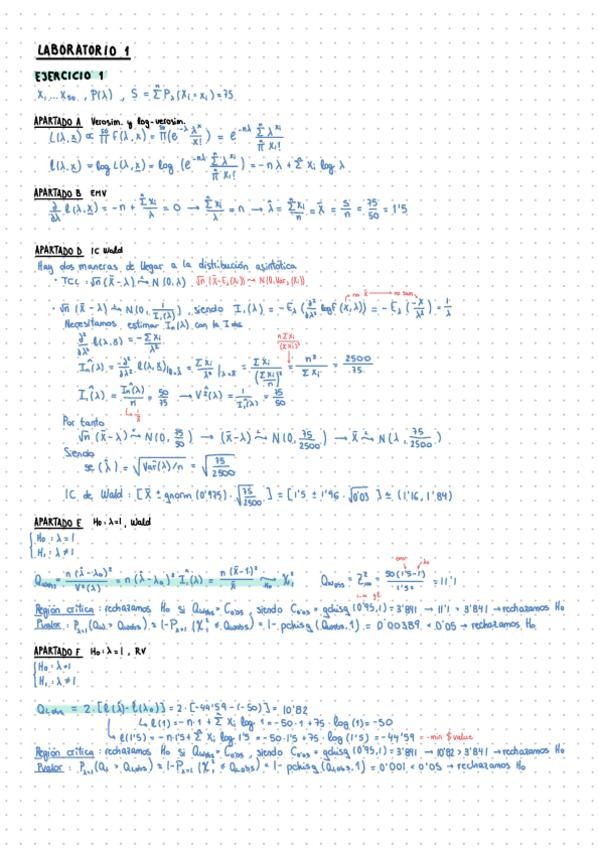 LABORATORIO 1
EJERCICIO 1
X₁ ... X₅₀ , P(λ) , S = Σⁿ P_λ (X_i = x_i) = 75
APARTADO A Verosim. y log-verosim.
L(λ,x) ∝ ∏⁵⁰ f(λ,x) = ∏(e^-λ λ^x / x!) = e^-nλ Σⁿ λ^xi / ∏ⁿ x_i!
l(λ,x) = log L(λ,x) = log (e^-nλ Σⁿ λ^xi / ∏ⁿ x_i!) = -nλ + Σ x_i log λ
APARTADO B EMV
∂/∂λ l(λ,x) = -n + Σⁿ x_i / λ = 0 → Σⁿ x_i / λ = n → λ̂ = Σⁿ x_i / n = x̄ = S/n = 75/50 = 1'5
APARTADO D IC Wald
Hay dos maneras de llegar a la distribución asintótica
· TCL: √n (x̄ - λ) ~ N (0, λ) √n (x̄ - E_λ(X_i)) ~ N (0, Var_λ(X_i))
no x̄ → no son
· √n (x̄ - λ) ~ N (0, 1/I₁(λ)), siendo I₁(λ) = -E_λ (∂²/∂λ² log f(x,λ)) = -E_λ (-x/λ²) = 1/λ
Necesitamos estimar I_n(λ) con la I obs
∂²/∂λ² l(λ,x) = -Σ x_i / λ²
n Σ x_i / (Σ x_i)²
Î_n(λ) = -∂²/∂λ² l(λ,x)|λ=λ̂ = Σ x_i / λ² |λ=λ̂ = Σ x_i / (Σ x_i / n)² = n² / Σ x_i = 2500 / 75
Î₁(λ) = Î_n(λ) / n = 50/75 → V̂²(λ) = 1 / Î₁(λ) = 75/50
↳ 1/x̄
Por tanto
√n (x̄ - λ) ~ N (0, 75/50) → (x̄ - λ) ~ N (0, 75/2500) → x̄ ~ N (λ, 75/2500)
Siendo
se (λ̂) = √Var(λ)/n = √75/2500
IC de Wald : [x̄ ± qnorm (0'975) · √75/2500] = [1'5 ± 1'96 · √0'03] = (1'16, 1'84)
APARTADO E H₀ : λ=1 , Wald
H₀ : λ = 1
H₁ : λ ≠ 1
Q_wobs = n (λ̂ - λ₀)² / V̂²(λ) = n (λ̂ - λ₀)² Î₁(λ) = n (x̄ - 1)² / x̄ ~ χ²₁ Q_wobs = Z²_obs = 50 (1'5 - 1)² / 1'5 = 11'1
Región crítica : rechazamos H₀ si Q_wobs > C₀'₀₅ , siendo C₀'₀₅ = qchisq (0'95, 1) = 3'841 → 11'1 > 3'841 → rechazamos H₀
Pvalor : P_λ=1 (Q_w > Q_wobs) = 1 - P_λ=1 (χ²₁ ≤ Q_wobs) = 1 - pchisq (Q_wobs, 1) = 0'00389 < 0'05 → rechazamos H₀
APARTADO F H₀ : λ=1 , RV
H₀ : λ=1
H₁ : λ ≠ 1
Q_Lobs = 2 · [l(λ̂) - l(λ₀)] = 2 · [-44'59 - (-50)] = 10'82
↳ l(1) = -n·1 + Σⁿ x_i log 1 = -50·1 + 75 · log (1) = -50
↳ l(1'5) = -n·1'5 + Σⁿ x_i log 1'5 = -50·1'5 + 75 · log (1'5) = -44'59 = -min $ value
Región crítica : rechazamos H₀ si Q_Lobs > C₀'₀₅ , siendo C₀'₀₅ = qchisq (0'95, 1) = 3'841 → 10'82 > 3'841 → rechazamos H₀
Pvalor : P_λ=1 (Q_L > Q_Lobs) = 1 - P_λ=1 (χ²₁ ≤ Q_Lobs) = 1 - pchisq (Q_Lobs, 1) = 0'001 < 0'05 → rechazamos H₀